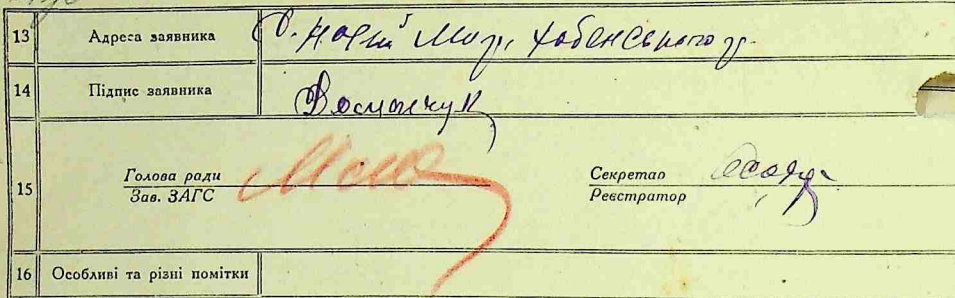 13 Адреса заявника С. Новий Мир, Хабенського р.
14 Підпис заявника
15 Голова ради Секретар
Зав. ЗАГС Реєстратор
16 Особливі та різні помітки